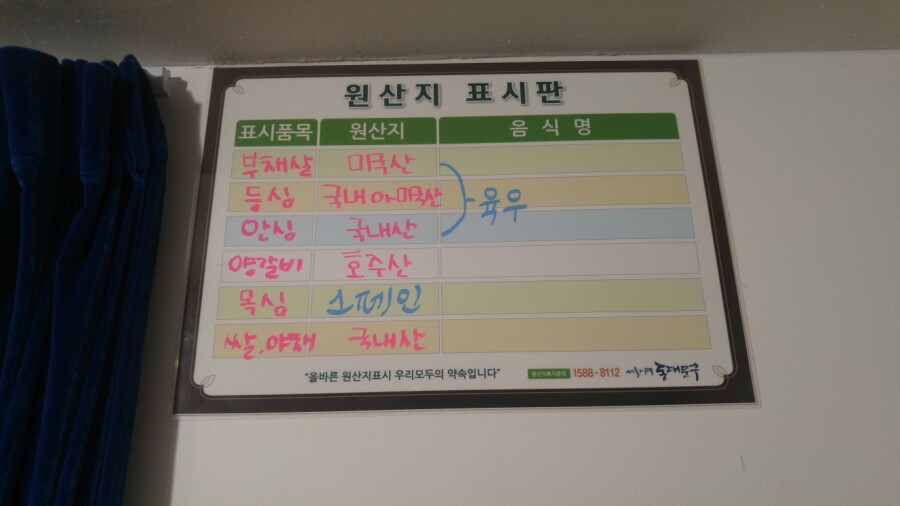 원산지 표시판
표시품목 원산지 음식명
부채살 미국산
등심 국내산 미국산 육우
안심 국내산
양갈비 호주산
목심 스페인
쌀.야채 국내산
"올바른 원산지표시 우리모두의 약속입니다" 원산지표시문의 1588-8112 동대문구